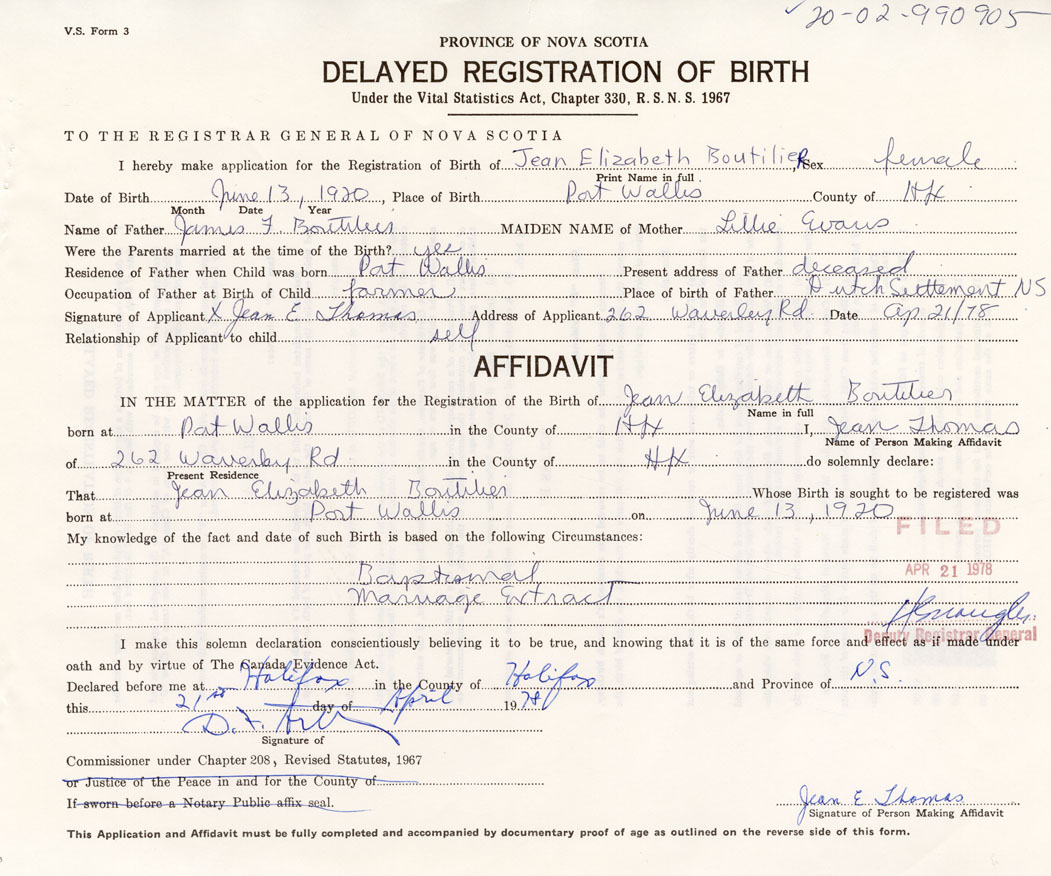 20-02-990905
V.S. Form 3
PROVINCE OF NOVA SCOTIA
DELAYED REGISTRATION OF BIRTH
Under the Vital Statistics Act, Chapter 330, R. S. N. S. 1967
TO THE REGISTRAR GENERAL OF NOVA SCOTIA
I hereby make application for the Registration of Birth of Jean Elizabeth Boutilier, Sex female
Print Name in full
Date of Birth June 13, 1920, Place of Birth Port Wallis County of Hfx
Month Date Year
Name of Father James F. Boutilier MAIDEN NAME of Mother Lillie Evans
Were the Parents married at the time of the Birth? yes
Residence of Father when Child was born Port Wallis Present address of Father deceased
Occupation of Father at Birth of Child farmer Place of birth of Father Dutch Settlement NS
Signature of Applicant X Jean E Thomas Address of Applicant 262 Waverley Rd. Date Ap 21/78
Relationship of Applicant to child self
AFFIDAVIT
IN THE MATTER of the application for the Registration of the Birth of Jean Elizabeth Boutilier
Name in full
born at Port Wallis in the County of Hfx I, Jean Thomas
Name of Person Making Affidavit
of 262 Waverley Rd in the County of Hfx do solemnly declare:
Present Residence
That Jean Elizabeth Boutilier Whose Birth is sought to be registered was
born at Port Wallis on June 13, 1920
FILED
My knowledge of the fact and date of such Birth is based on the following Circumstances:
APR 21 1978
Baptismal
Marriage Extract
Deputy Registrar General
I make this solemn declaration conscientiously believing it to be true, and knowing that it is of the same force and effect as if made under
oath and by virtue of The Canada Evidence Act.
Declared before me at Halifax in the County of Halifax and Province of N.S.
this 21st day of April 1978
D. F.
Signature of
Commissioner under Chapter 208, Revised Statutes, 1967
or Justice of the Peace in and for the County of
If sworn before a Notary Public affix seal.
Jean E Thomas
Signature of Person Making Affidavit
This Application and Affidavit must be fully completed and accompanied by documentary proof of age as outlined on the reverse side of this form.